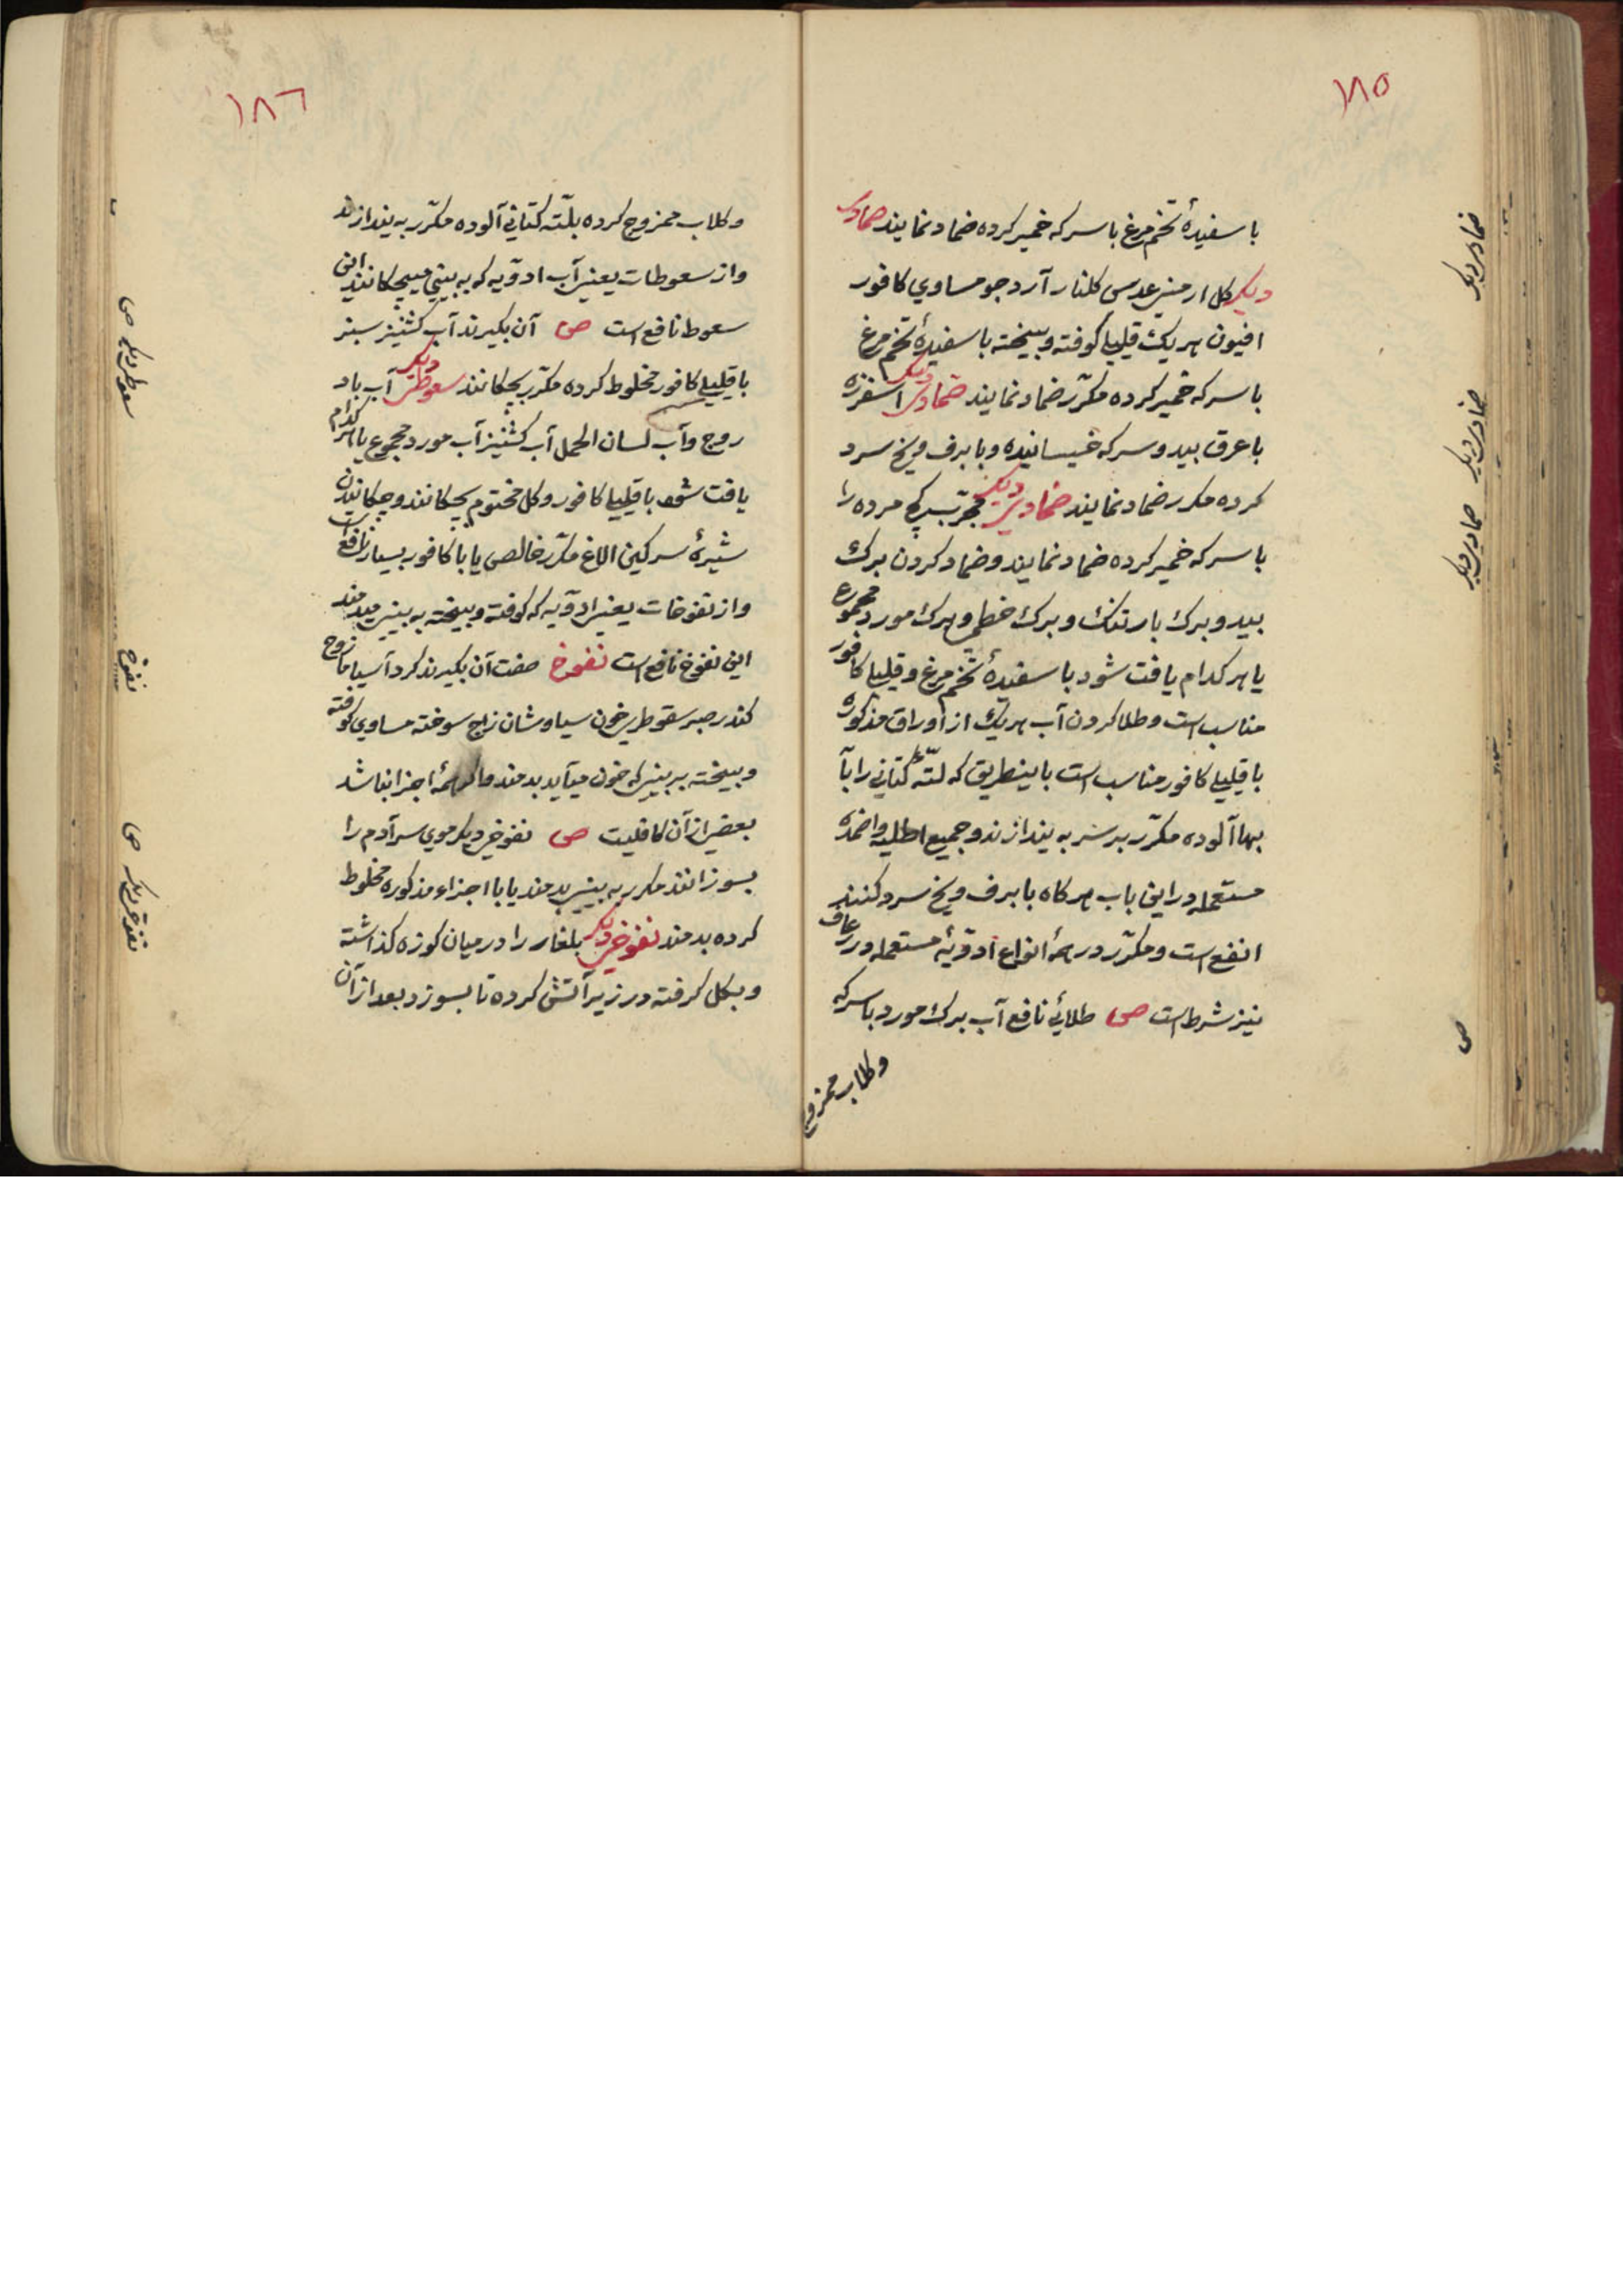 ١٨٥
با سفیدهٔ تخم مرغ با سرکه خمیر کرده ضماد نمایند ضمادی
دیکر کل ارمنی عدس کلنار آرد جو مساوي کافور
افیون هر یک قلیلیا کوفته و بیخته با سفیدهٔ تخم مرغ
با سرکه خمیر کرده مکرّر ضماد نمایند ضمادی دیکر اسفرزه
با عرق بید و سرکه خیسانیده و با برف و یخ سرد
کرده مکرر ضماد نمایند ضمادی دیکر مجرّب کچ مرده را
با سرکه خمیر کرده ضماد نمایند و ضماد کردن برك
بید و برك بارتنك و برك خطمی و برك مورد مجموع
یا هر کدام یافت شود با سفیدهٔ تخم مرغ و قلیلیا کافور
مناسب است و طلا کردن آب هر یك از اوراق مذکوره
با قلیلي کافور مناسب است باینطریق که لتّهٔ کتّاني را بآ
بها آلوده مکرّر بر سر به یندازند و جمیع اطلیه و اضمده
مستعمله در این باب هر کاه با برف و یخ سرد کنند
انفع است و مکرّر در همهٔ انواع ادوّیهٔ مستعمله در رعاف
نیز شرط است ص طلائي نافع آب برك مورد با سرکه
و کلاب ممزوج
ضمادی دیکر
ضمادی دیکر
ضمادی دیکر
ص
١٨٦
و کلاب ممزوج کرده بلتّه کتّاني آلوده مکرّر به یندازند
و از سعوطات یعنی آب ادوّیه که به بیني میچکانند این
سعوط نافع است ص آن بکیرند آب کشنیز سبز
با قلیلي کافور مخلوط کرده مکرّر بچکانند سعوطی دیکر آب باد
روج و آب لسان الحمل آب کشنیز آب مورد مجموع یا هر کدام
یافت شود با قلیلیا کافور و کل مختوم بچکانند و چکانیدن
شیرهٔ سرکین الاغ مکرّر خالص یا با کافور بسیار نافع است
و از نفوخات یعنی ادوّیه که کوفته و بیخته به بینی میدمند
این نفوخ نافع است نفوخ صفت آن بکیرند کرد آسیا مازوج
کندر صبر سقوطری خون سیاوشان زاج سوخته مساوي کوفته
و بیخته به بینی که خون میآید بدمند و اکر همهٔ اجزا نباشد
بعضی از آن کافیست ص نفوخی دیکر موي سر آدم را
بسوزانند مکرر به بینی بدمند یا با اجزاء مذکوره مخلوط
کرده بدمند نفوخی دیکر بلغار را در میان کوزه کذاشته
و بکل کرفته در زیر آتش کرده تا بسوزد بعد از آن
سعوطی دیکر ص
نفوخ
نفوخی دیکر ص